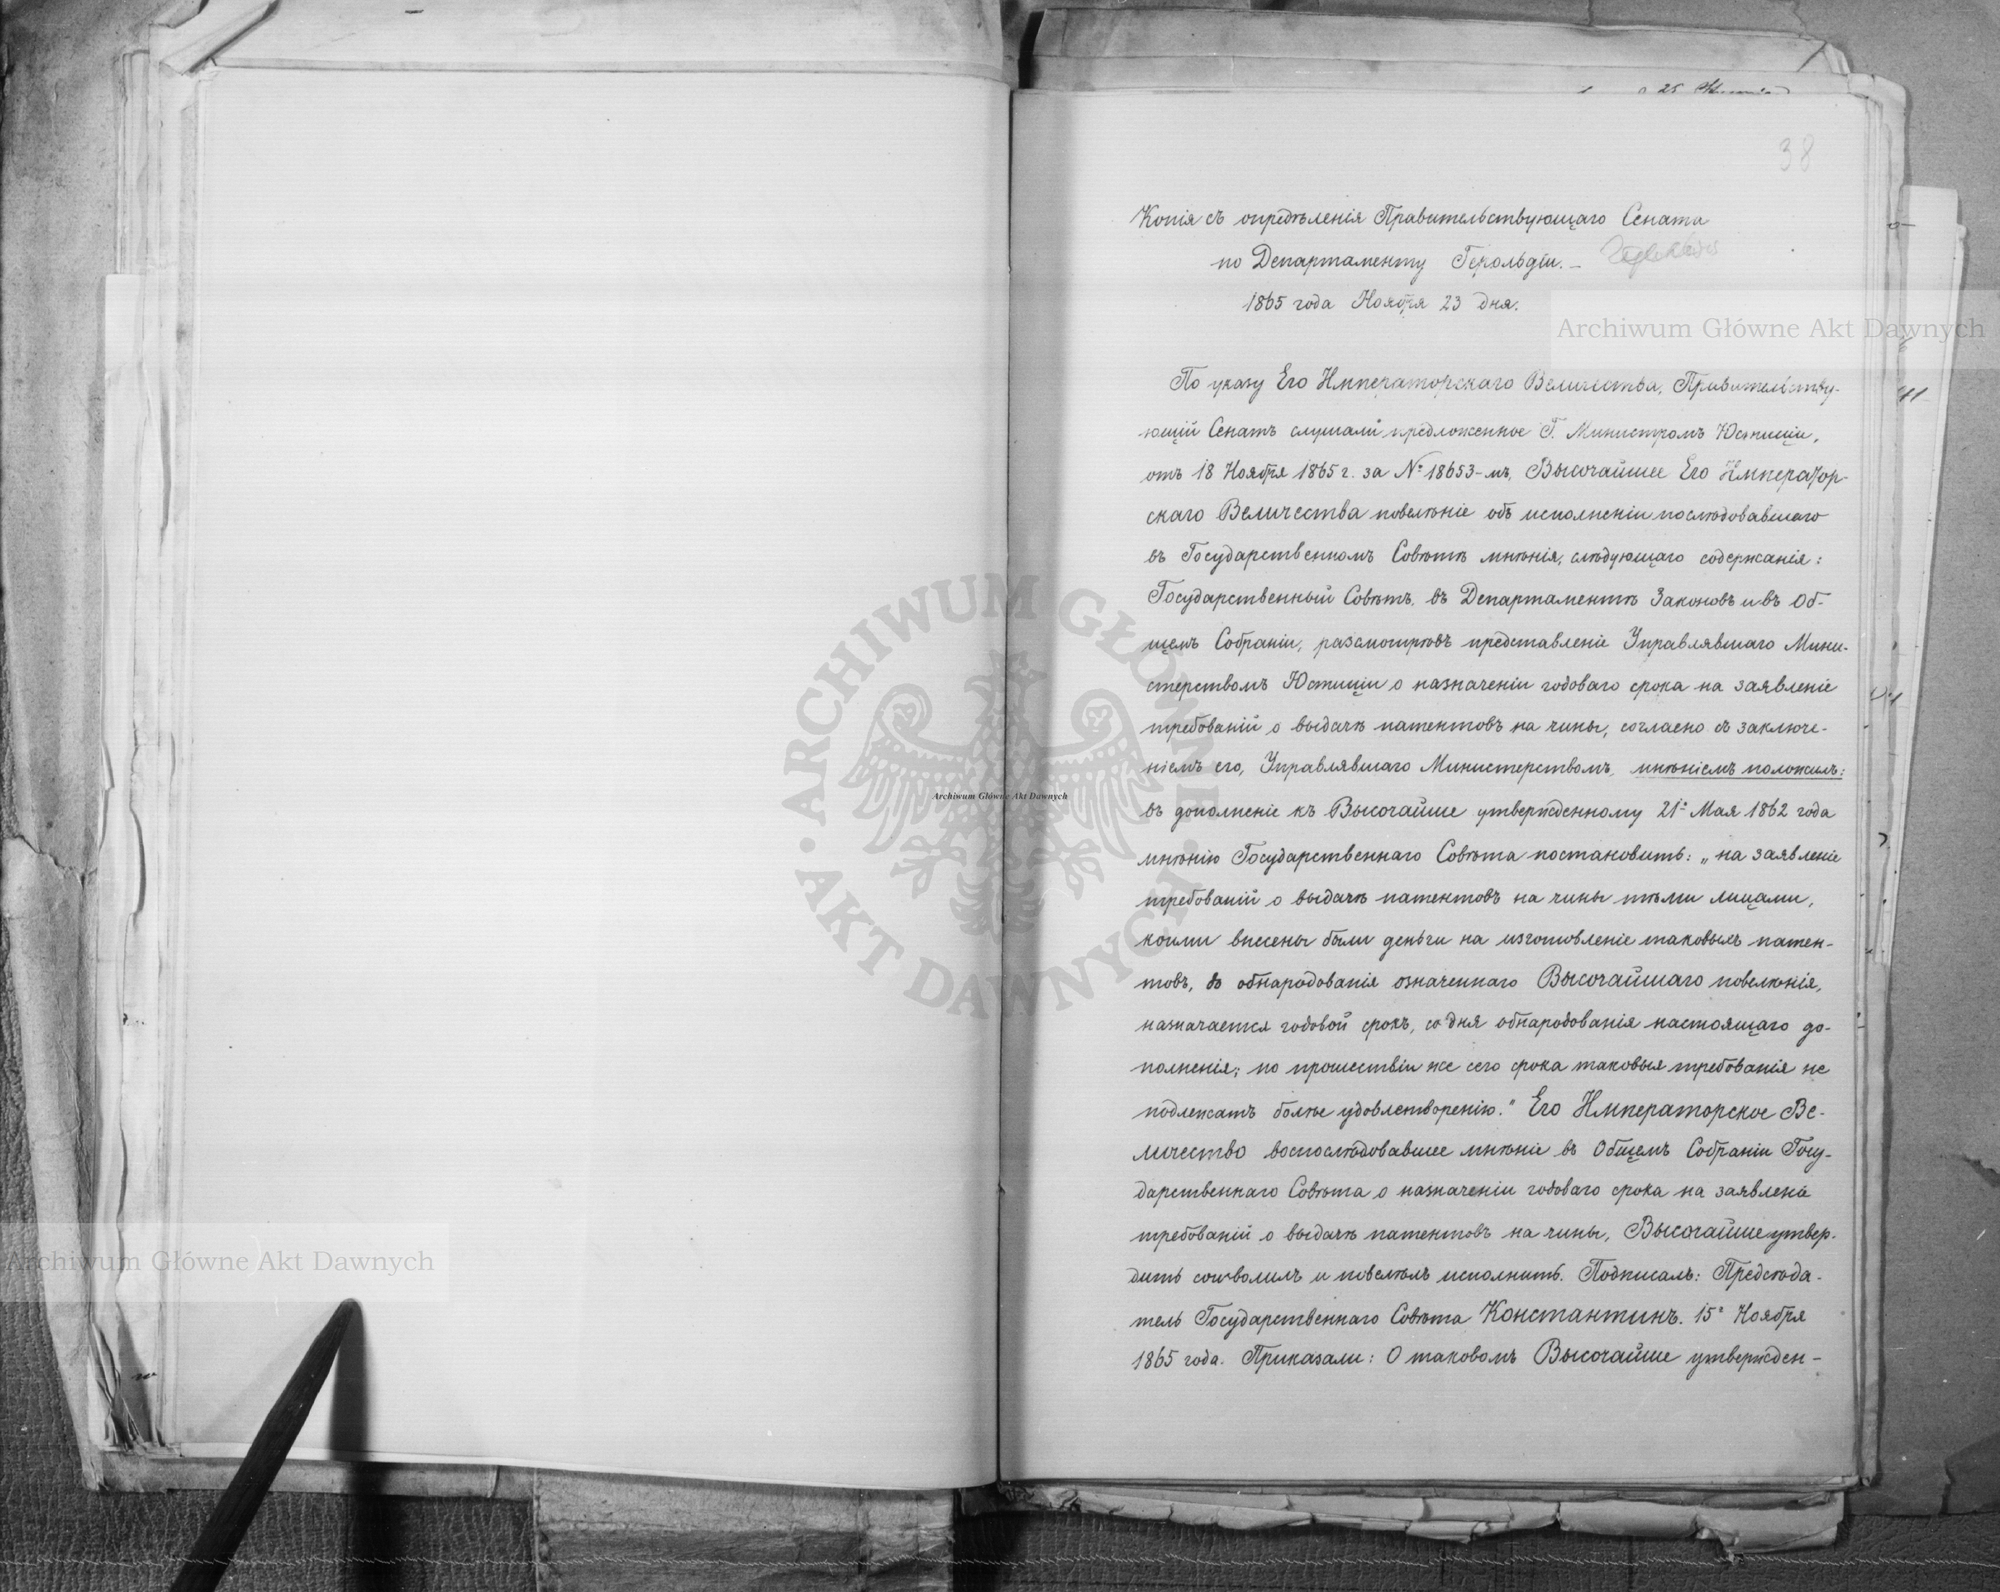 25
38
Копія съ опредѣленія Правительствующаго Сената
по Департаменту Герольдіи. —
1865 года Ноября 23 дня.
Archiwum Główne Akt Dawnych
По указу Его Императорскаго Величества, Правительству-
ющій Сенатъ слушали предложенное Г. Министромъ Юстиціи,
отъ 18 Ноября 1865 г. за № 18653-мъ, Высочайшее Его Император-
скаго Величества повелѣніе объ исполненіи послѣдовавшаго
въ Государственномъ Совѣтѣ мнѣнія, слѣдующаго содержанія:
Государственный Совѣтъ, въ Департаментѣ Законовъ и въ Об-
щемъ Собраніи, разсмотрѣвъ представленіе Управлявшаго Мини-
стерствомъ Юстиціи о назначеніи годоваго срока на заявленіе
требованій о выдачѣ патентовъ на чины, согласно съ заключе-
ніемъ его, Управлявшаго Министерствомъ, мнѣніемъ положилъ:
въ дополненіе къ Высочайше утвержденному 21го Мая 1862 года
мнѣнію Государственнаго Совѣта постановить: „на заявленіе
требованій о выдачѣ патентовъ на чины тѣми лицами,
коими внесены были деньги на изготовленіе таковыхъ патен-
товъ, до обнародованія означеннаго Высочайшаго повелѣнія,
назначается годовой срокъ, со дня обнародованія настоящаго до-
полненія; по прошествіи же сего срока таковыя требованія не
подлежатъ болѣе удовлетворенію." Его Императорское Ве-
личество воспослѣдовавшее мнѣніе въ Общемъ Собраніи Госу-
дарственнаго Совѣта о назначеніи годоваго срока на заявленіе
требованій о выдачѣ патентовъ на чины, Высочайше утвер-
дить соизволилъ и повелѣлъ исполнить. Подписалъ: Предсѣда-
тель Государственнаго Совѣта Константинъ. 15го Ноября
1865 года. Приказали: О таковомъ Высочайше утвержден-
ARCHIWUM GŁÓWNE AKT DAWNYCH
Archiwum Główne Akt Dawnych
Archiwum Główne Akt Dawnych